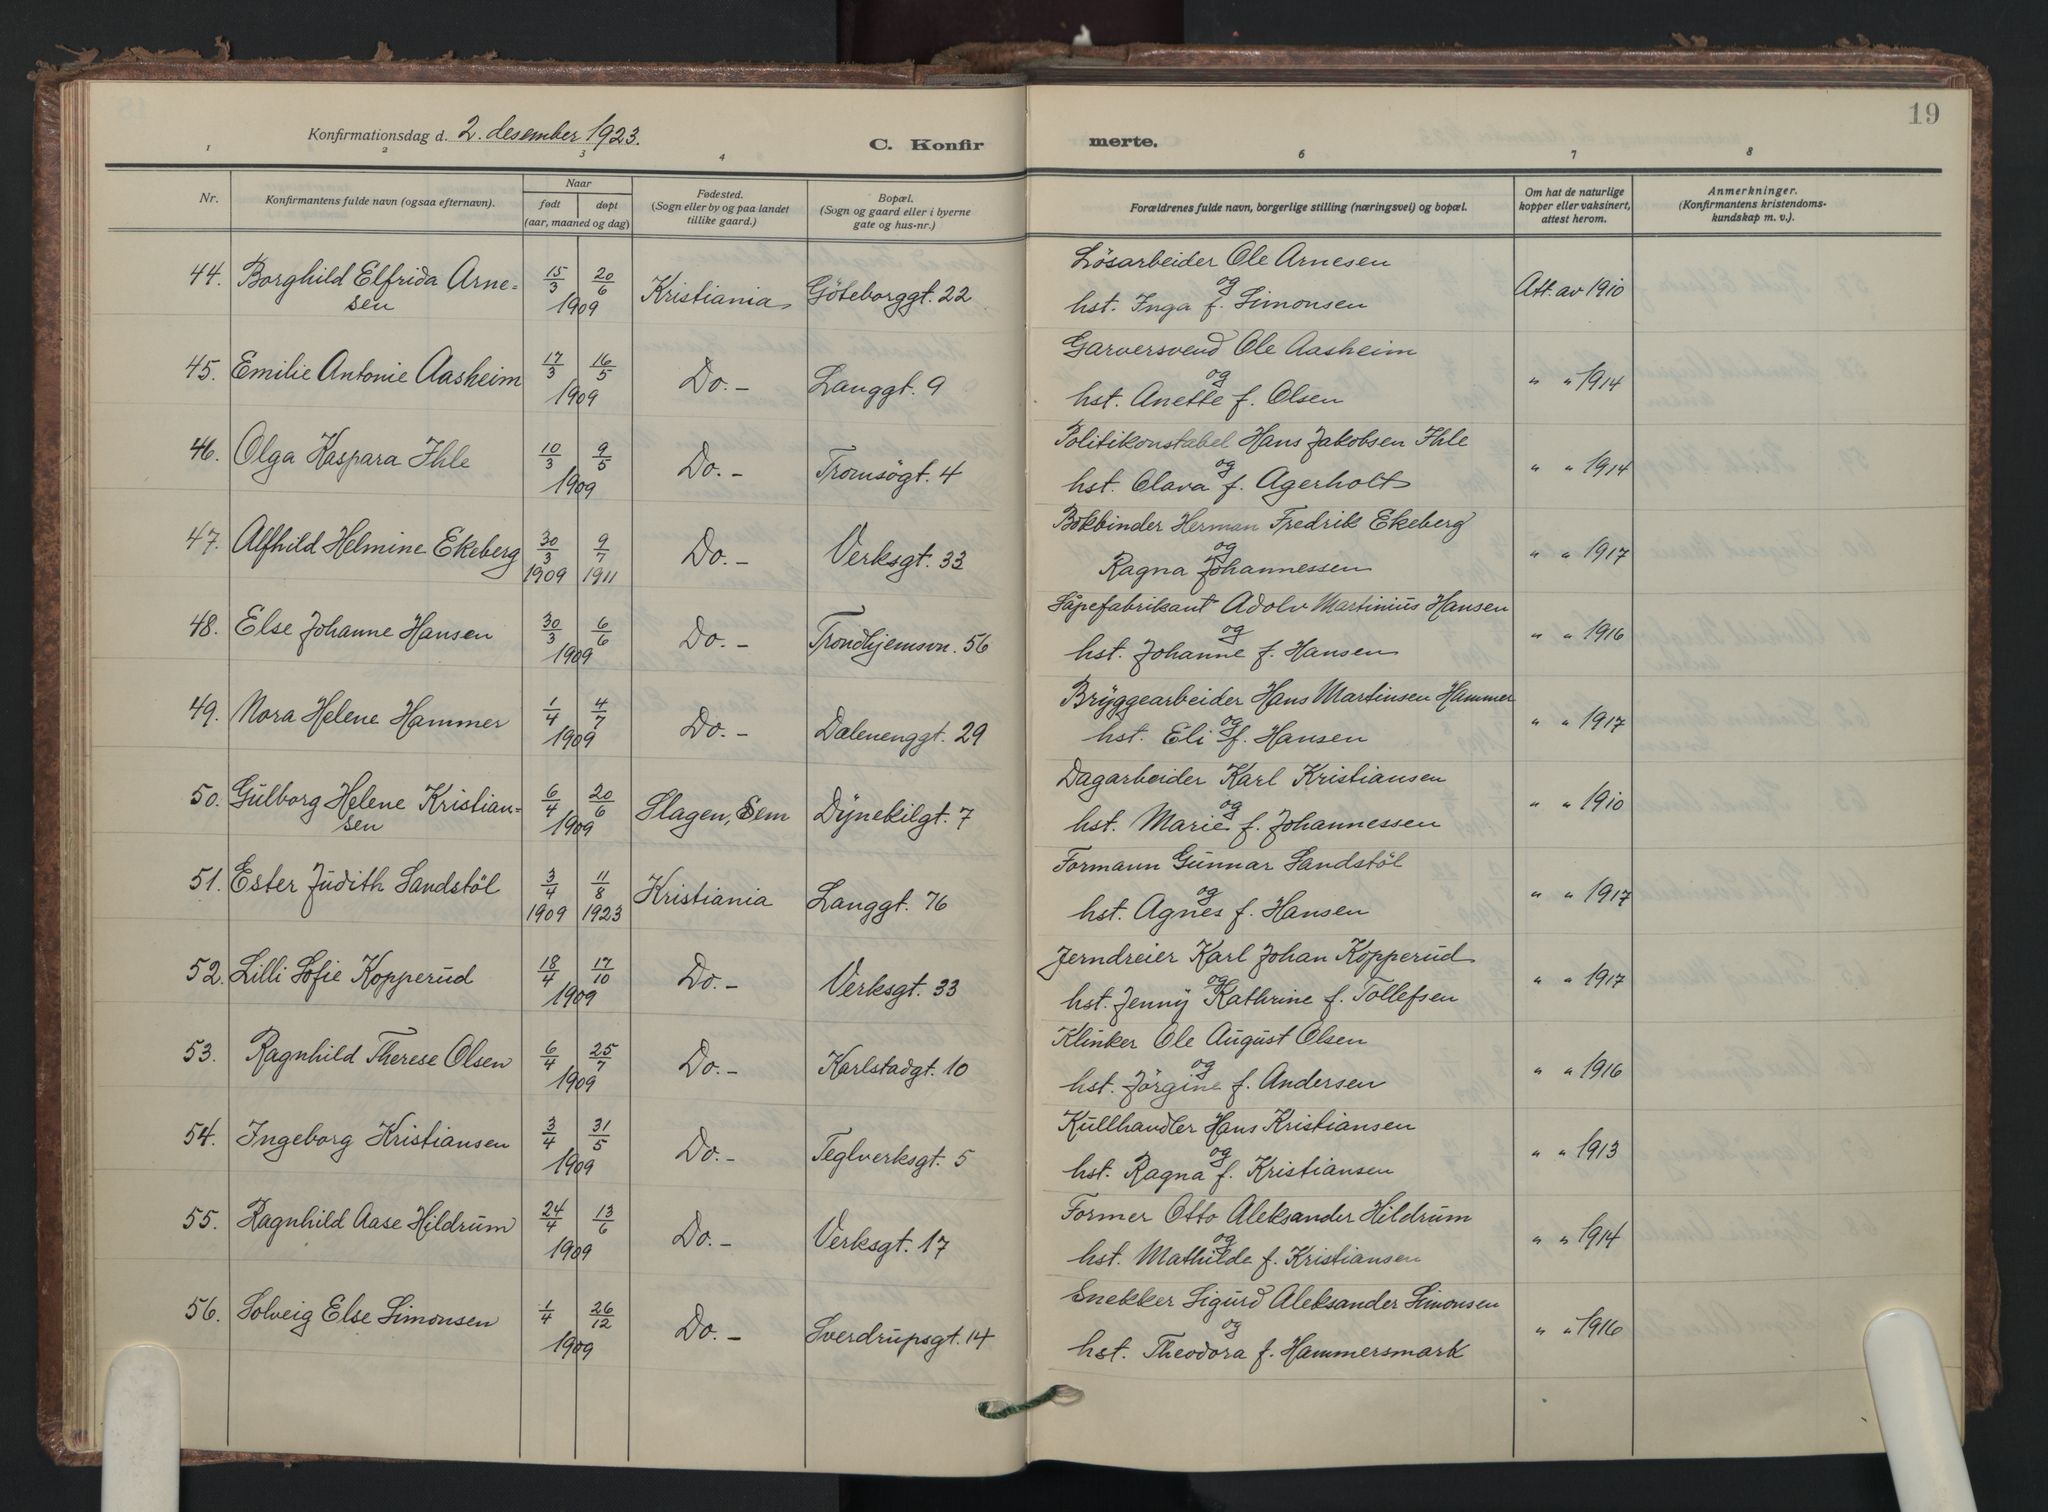 19
Konfirmationsdag d. 2. desember 1923.
C. Konfirmerte.
1 2 3 4 6 7 8
Nr.
Konfirmantens fulde navn (ogsaa efternavn).
Naar
født døpt
(aar, maaned og dag)
Fødested.
(Sogn eller by og paa landet
tillike gaard.)
Bopæl.
(Sogn og gaard eller i byerne
gate og hus-nr.)
Forældrenes fulde navn, borgerlige stilling (næringsvei) og bopæl.
Om hat de naturlige
kopper eller vaksinert,
attest herom.
Anmerkninger.
(Konfirmantens kristendoms-
kundskap m. v.).
44. Borghild Elfrida Arne-
sen 15/3 20/6 1909 Kristiania Göteborggt. 22 Løsarbeider Ole Arnesen
og
hst. Inga f. Simonsen Att. av 1910
45. Emilie Antonie Aasheim 17/3 16/5 1909 Do.- Langgt. 9 Garversvend Ole Aasheim
og
hst. Anette f. Olsen " " 1914
46. Olga Kaspara Ihle 10/3 9/5 1909 Do.- Tromsögt. 4 Politikonstabel Hans Jakobsen Ihle
og
hst. Olava f. Agerholt " " 1914
47. Alfhild Helmine Ekeberg 30/3 1909 9/7 1911 Do.- Verksgt. 33 Bokbinder Herman Fredrik Ekeberg
og
Ragna Johannessen " " 1917
48. Else Johanne Hansen 30/3 6/6 1909 Do.- Trondhjemsvn. 56 Såpefabrikant Adolv Martinius Hansen
og
hst. Johanne f. Hansen " " 1916
49. Nora Helene Hammer 1/4 4/7 1909 Do.- Dælenenggt. 29 Bryggearbeider Hans Martinsen Hammer
og
hst. Eli f. Hansen " " 1917
50. Gulborg Helene Kristian-
sen 6/4 20/6 1909 Slagen, Sem Dynekilgt. 7 Dagarbeider Karl Kristiansen
og
hst. Marie f. Johannessen " " 1910
51. Ester Judith Sandstöl 3/4 1909 11/8 1923 Kristiania Langgt. 76 Formann Gunnar Sandstöl
og
hst. Agnes f. Hansen " " 1917
52. Lilli Sofie Kopperud 18/4 17/10 1909 Do.- Verksgt. 33 Jerndreier Karl Johan Kopperud
og
hst. Jenny Kathrine f. Tollefsen " " 1917
53. Ragnhild Therese Olsen 6/4 25/7 1909 Do.- Karlstadgt. 10 Klinker Ole August Olsen
og
hst. Jörgine f. Andersen " " 1916
54. Ingeborg Kristiansen 3/4 31/5 1909 Do.- Teglverksgt. 5 Kullhandler Hans Kristiansen
og
hst. Ragna f. Kristiansen " " 1913
55. Ragnhild Aase Hildrum 24/4 13/6 1909 Do.- Verksgt. 17 Former Otto Aleksander Hildrum
og
hst. Mathilde f. Kristiansen " " 1914
56. Solveig Else Simonsen 1/4 26/12 1909 Do.- Sverdrupsgt. 14 Snekker Sigurd Aleksander Simonsen
og
hst. Theodora f. Hammersmark " " 1916